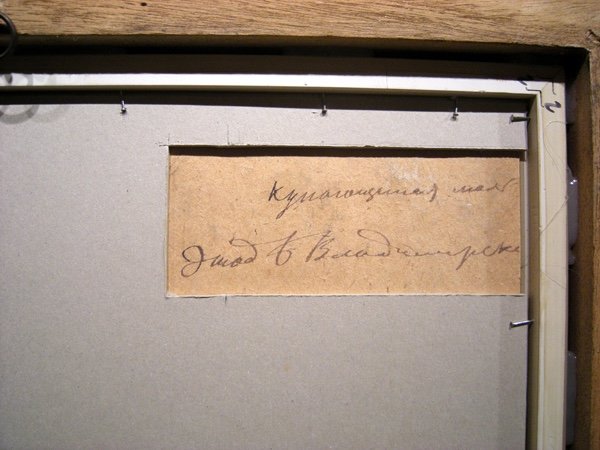 Купающиеся мал
Этюд в Владимирске